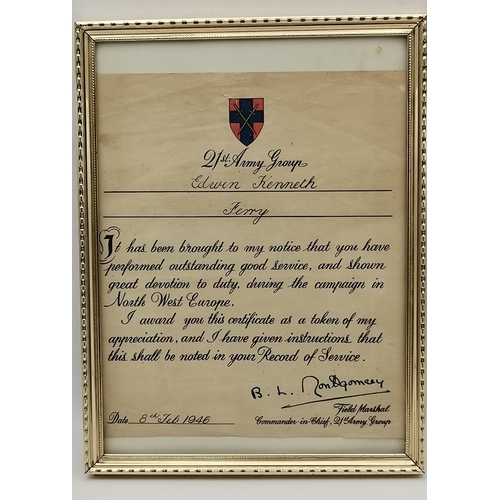 21st Army Group
Edwin Kenneth
Ferry
It has been brought to my notice that you have
performed outstanding good service, and shown
great devotion to duty, during the campaign in
North West Europe.
I award you this certificate as a token of my
appreciation, and I have given instructions that
this shall be noted in your Record of Service.
B. L. Montgomery
Field Marshal
Date 8th Feb 1946 Commander-in-Chief, 21st Army Group